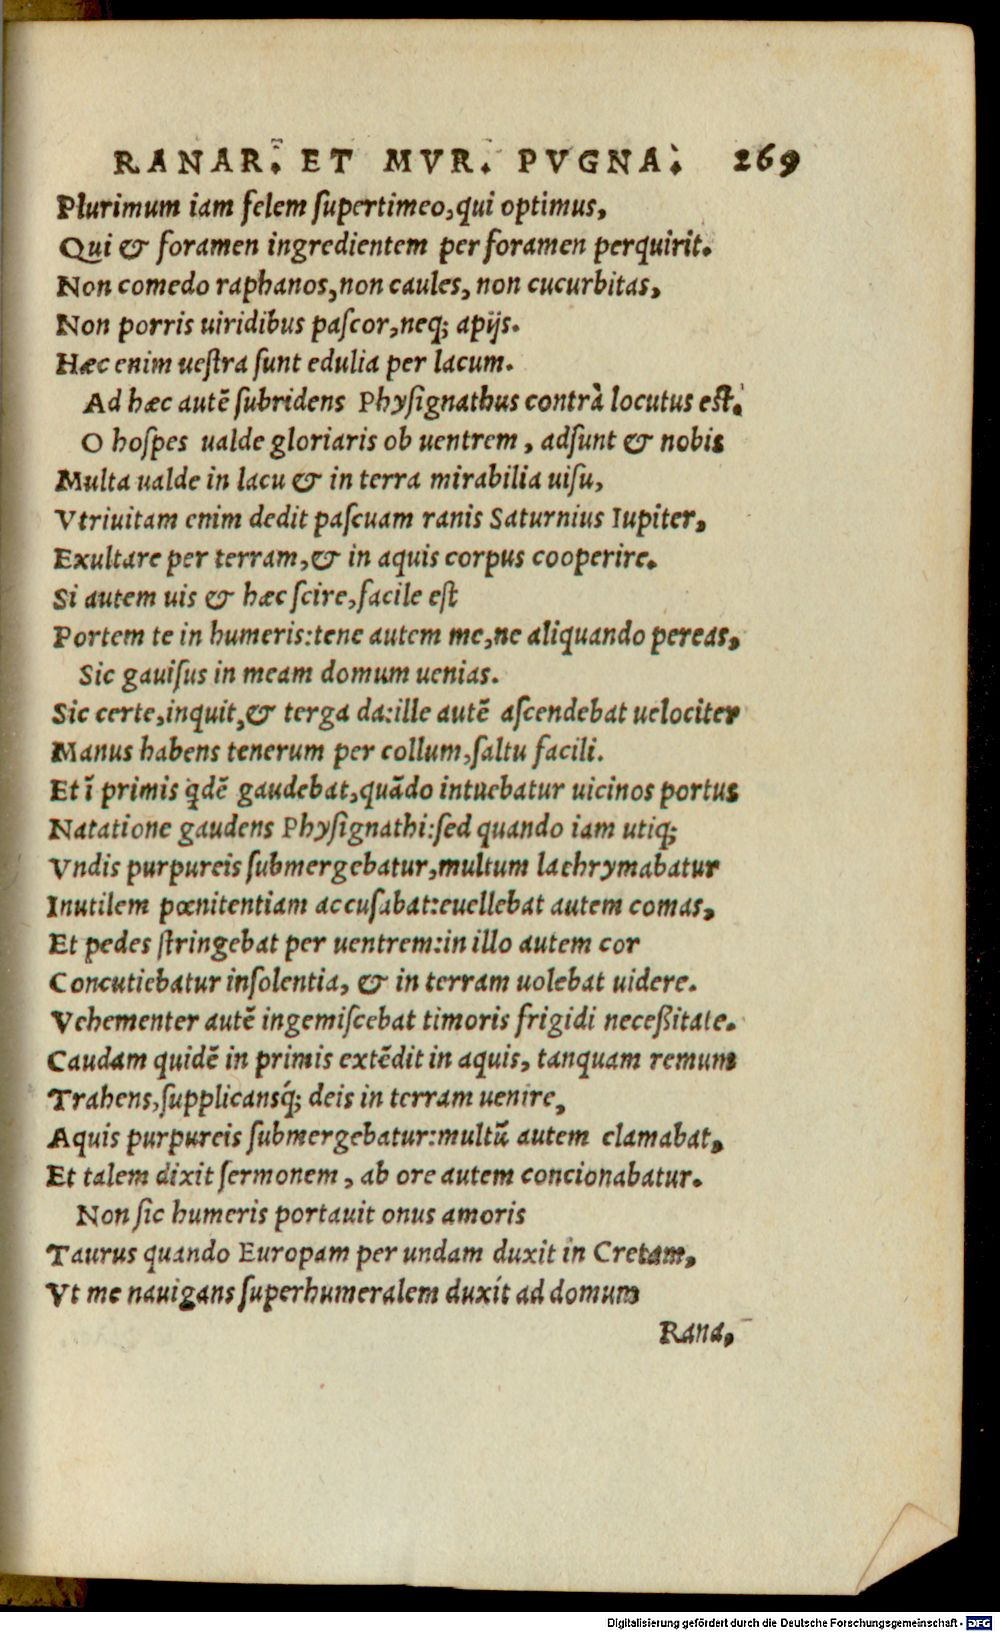 RANAR. ET MVR. PVGNA. 269
Plurimum iam felem ſupertimeo,qui optimus,
Qui & foramen ingredientem per foramen perquirit.
Non comedo raphanos,non caules, non cucurbitas,
Non porris uiridibus paſcor,neq; apijs.
Hæc enim ueſtra ſunt edulia per lacum.
Ad hæc autē ſubridens Phyſignathus contrà locutus eſt.
O hoſpes ualde gloriaris ob uentrem, adſunt & nobis
Multa ualde in lacu & in terra mirabilia uiſu,
Vtriuitam enim dedit paſcuam ranis Saturnius Iupiter,
Exultare per terram,& in aquis corpus cooperire.
Si autem uis & hæc ſcire,facile eſt
Portem te in humeris:tene autem me,ne aliquando pereas,
Sic gauiſus in meam domum uenias.
Sic certe,inquit,& terga da:ille autē aſcendebat uelociter
Manus habens tenerum per collum,ſaltu facili.
Et ī primis q̄dē gaudebat,quādo intuebatur uicinos portus
Natatione gaudens Phyſignathi:ſed quando iam utiq;
Vndis purpureis ſubmergebatur,multum lachrymabatur
Inutilem pœnitentiam accuſabat:euellebat autem comas,
Et pedes ſtringebat per uentrem:in illo autem cor
Concutiebatur inſolentia, & in terram uolebat uidere.
Vehementer autē ingemiſcebat timoris frigidi neceßitate.
Caudam quidē in primis extēdit in aquis, tanquam remum
Trahens,ſupplicansq́; deis in terram uenire,
Aquis purpureis ſubmergebatur:multū autem clamabat,
Et talem dixit ſermonem, ab ore autem concionabatur.
Non ſic humeris portauit onus amoris
Taurus quando Europam per undam duxit in Cretam,
Vt me nauigans ſuperhumeralem duxit ad domum
Rana,
Digitalisierung gefördert durch die Deutsche Forschungsgemeinschaft - DFG